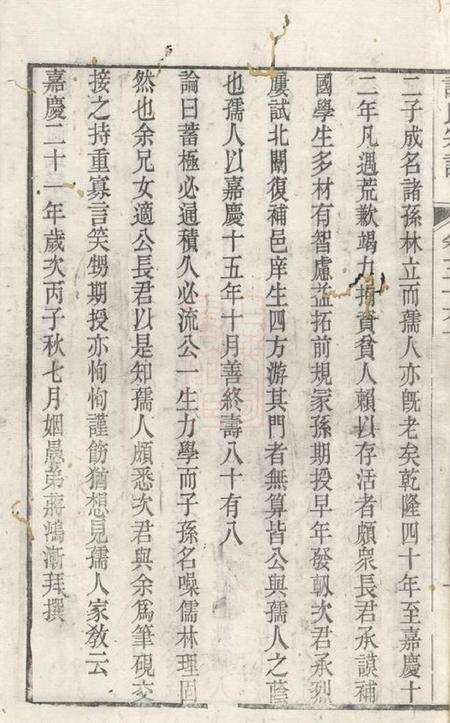 二子成名諸孫林立而孺人亦旣老矣乾隆四十年至嘉慶十
二年凡遇荒歉竭力捐資貧人賴以存活者頗衆長君承謨補
國學生多材有智慮益拓前規家孫期授早年發軔次君承烈
屢試北闈復補邑庠生四方游其門者無算皆公與孺人之蔭
也孺人以嘉慶十五年十月善終壽八十有八
論曰蓄極必通積久必流公一生力學而子孫名噪儒林理固
然也余兄女適公長君以是知孺人頗悉次君與余爲筆硯交
接之持重寡言笑甥期授亦恂恂謹飭猶想見孺人家敎云
嘉慶二十一年歲次丙子秋七月姻愚弟蔣鴻漸拜撰